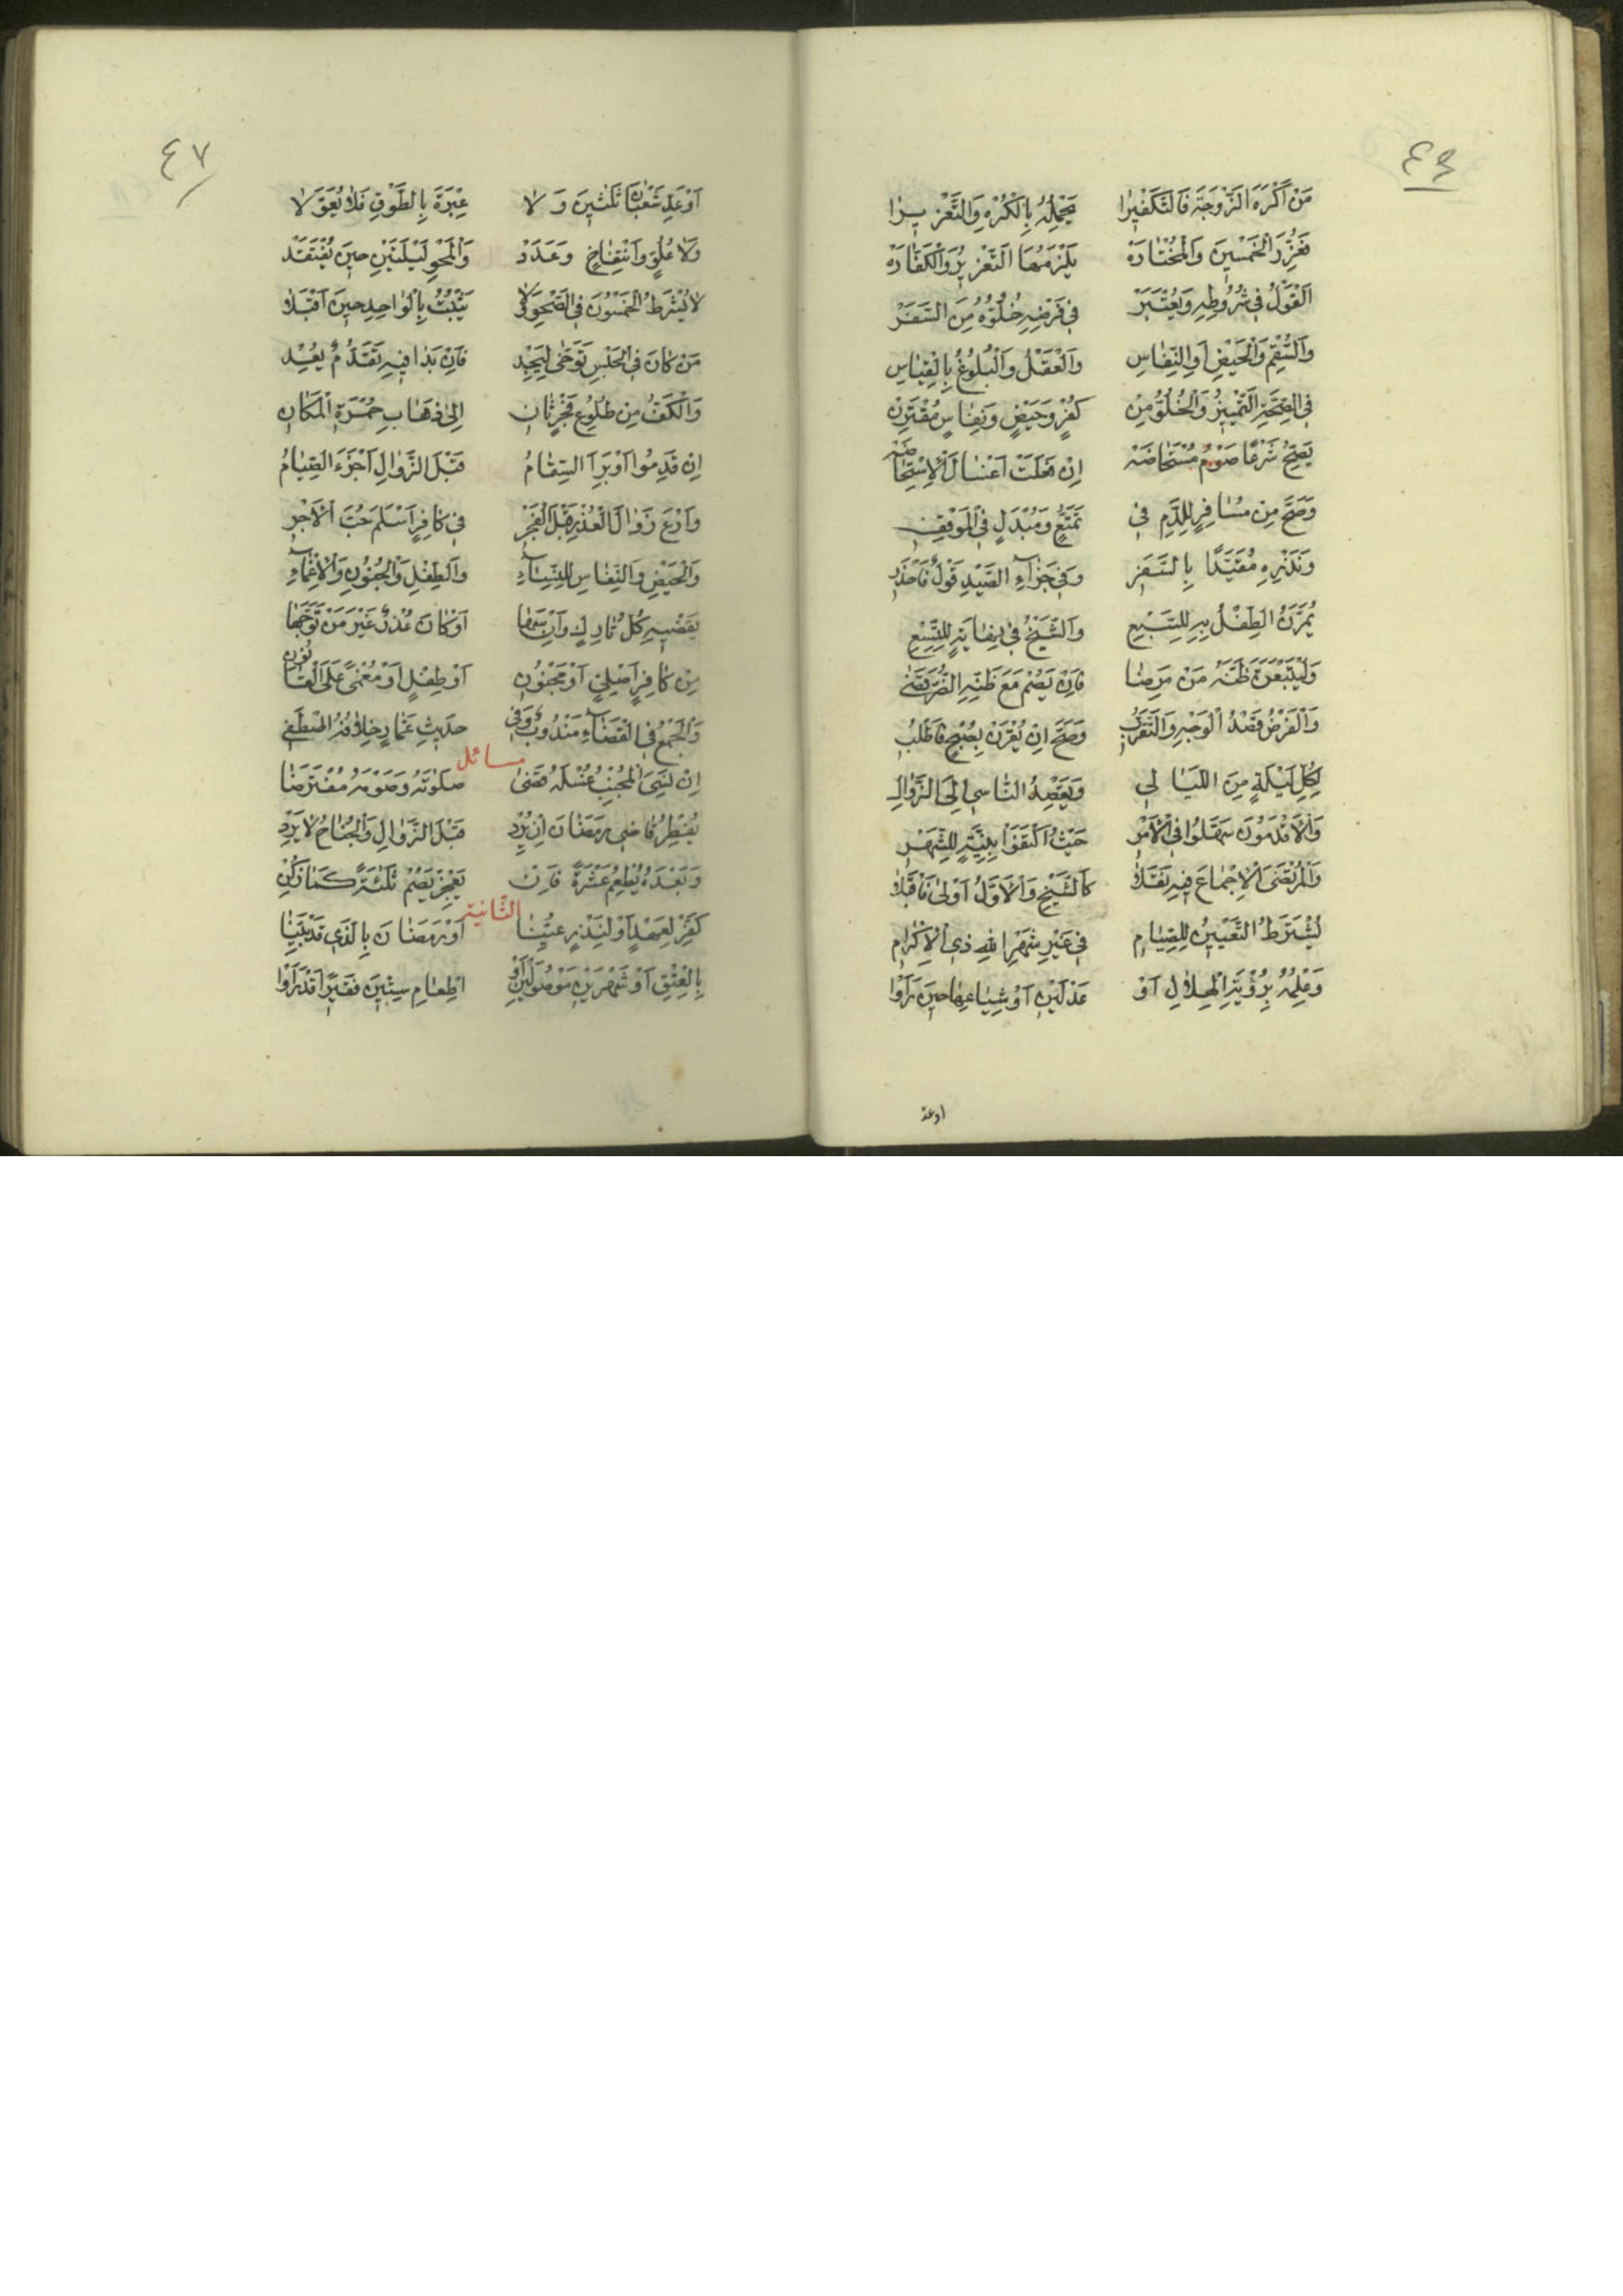 ٤٦
مَنْ أَكْرَهَ الزَّوْجَةَ فَالتَّكْفِيرَا يَحْمِلُهُ بِالْكُرْهِ وَالتَّعْزِيرَا
فَعَزِّرَ الْخَمْسِينَ وَالْمُخْتَارَهْ يَلْزَمُهَا التَّعْزِيرُ وَالْكَفَّارَهْ
اَلْقَوْلُ فِي شُرُوطِهِ وَيُعْتَبَرْ فِي فَرْضِهِ خُلُوُّهُ مِنَ السَّفَرْ
وَالسُّقْمِ وَالْحَيْضِ أَوِ النِّفَاسِ وَالْعَقْلُ وَالْبُلُوغُ بِالْقِيَاسِ
فِي الصِّحَّةِ التَّمْيِيزُ وَالْخُلُوُّ مِنْ كُفْرٍ وَحَيْضٍ وَنِفَاسٍ مُقْتَرِنْ
يَصِحُّ شَرْعًا صَوْمُ مُسْتَحَاضَهْ إِنْ فَعَلَتْ أَغْسَالَ الْإِسْتِحَاضَهْ
وَصَحَّ مِنْ مُسَافِرٍ لِلدَّمِ فِي تَمَتُّعٍ وَمُبْدَلٍ فِي الْمَوْقِفِ
وَنَذْرِهِ مُقَيَّدًا بِالسَّفَرِ وَفِي جَزَاءِ الصَّيْدِ قَوْلٌ فَاحْذَرِ
يُمَرَّنُ الطِّفْلُ بِهِ لِلسَّبْعِ وَالشَّيْخُ فِي نِهَايَةٍ لِلتِّسْعِ
وَلْيَتْبَعَنَّ ظَنَّهُ مَنْ مَرِضَا فَإِنْ يَصُمْ مَعَ ظَنِّهِ الضُّرَّ قَضَى
وَالْفَرْضُ قَصْدُ الْوَجْهِ وَالتَّقَرُّبِ وَصَحَّ إِنْ يُقْرَنْ بِصُبْحٍ فَاطْلُبِ
لِكُلِّ لَيْلَةٍ مِنَ اللَّيَالِي وَيَقْصِدُ النَّاسِي إِلَى الزَّوَالِ
وَالْأَقْدَمُونَ سَهَّلُوا فِي الْأَمْرِ حَيْثُ اكْتَفَوْا بِنِيَّةٍ لِلشَّهْرِ
وَالْمُرْتَضَى الْإِجْمَاعَ فِيهِ نَقَلَا كَالشَّيْخِ وَالْأَوَّلُ أَوْلَى فَاقْبَلَا
يُشْتَرَطُ التَّعْيِينُ لِلصِّيَامِ فِي غَيْرِ شَهْرِ اللهِ ذِي الْإِكْرَامِ
وَعِلْمُهُ بِرُؤْيَةِ الْهِلَالِ أَوْ عَدْلَيْنِ أَوْ شِيَاعِهَا حِينَ رَأَوْا
اوعد
٤٧
أَوْ عَدِّ شَعْبَانَ ثَلٰثِينَ وَلَا عِبْرَةَ بِالطَّوْقِ فَلَا تُعَوِّلَا
وَلَا عُلُوٍّ وَانْتِفَاخٍ وَعَدَدْ وَالْمَحْوِ لَيْلَتَيْنِ حِينَ يُفْتَقَدْ
لَا يُشْرَطُ الْخَمْسُونَ فِي الصَّحْوِ وَلَا يَثْبُتُ بِالْوَاحِدِ حِينَ أَقْبَلَا
مَنْ كَانَ فِي الْحَبْسِ تَوَخَّى لِيَجِدْ فَإِنْ بَدَا فِيهِ تَقَدُّمٌ يُعِدْ
وَالْكَفُّ مِنْ طُلُوعِ فَجْرٍ ثَانِ إِلَى ذَهَابِ حُمْرَةِ الْمَكَانِ
إِنْ قَدِمُوا أَوْ بَرِأَ السِّقَامُ قَبْلَ الزَّوَالِ أَجْزَءَ الصِّيَامُ
وَارْعَ زَوَالَ الْعُذْرِ قَبْلَ الْفَجْرِ فِي كَافِرٍ أَسْلَمَ حُبَّ الْأَجْرِ
وَالْحَيْضِ وَالنِّفَاسِ لِلنِّسَاءِ وَالطِّفْلِ وَالْجُنُونِ وَالْإِغْمَاءِ
يَقْضِيهِ كُلُّ تَارِكٍ وَإِنْ سَهَا أَوْ كَانَ عُذْرٌ غَيْرَ مَنْ تَوَجَّهَا
مِنْ كَافِرٍ أَصْلِيٍّ أَوْ مَجْنُونِ أَوْ طِفْلٍ أَوْ مُغْمًى عَلَى الْقَانُونِ
وَالْجَمْعُ فِي الْقَضَاءِ مَنْدُوبٌ وَفِي حَدِيثِ عَمَّارٍ خِلَافُهُ اصْطُفِي
مسائل
إِنْ نَسِيَ الْمُجْنِبُ غُسْلَهُ قَضَى صَلٰوتَهُ وَصَوْمَهُ مُفْتَرَضَا
يُفْطِرُ قَاضِي رَمَضَانَ إِنْ يُرِدْ قَبْلَ الزَّوَالِ وَالْجُنَاحُ لَا يَرِدْ
وَبَعْدَهُ يُطْعِمُ عَشْرَةً فَإِنْ يَعْجِزْ يَصُمْ ثَلٰثَةً كَمَا زُكِنْ
الثانية
كَفِّرْ لِعَهْدٍ أَوْ لِنَذْرٍ عُيِّنَا أَوْ رَمَضَانَ بِالَّذِي قَدْ بُيِّنَا
بِالْعِتْقِ أَوْ شَهْرَيْنِ مَوْصُولَيْنِ أَوْ إِطْعَامِ سِتِّينَ فَقِيرًا قَدْ رَأَوْا